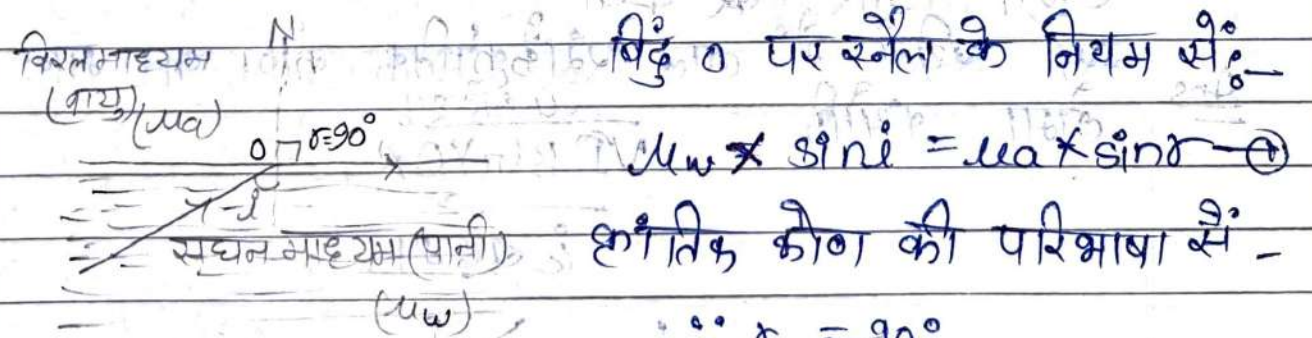 विरल माध्यम
(वायु) (μa)
N
O r=90°
i
सघन माध्यम (पानी)
(μw)
बिंदु O पर स्नैल के नियम सें:-
μw × sini = μa × sinr —①
क्रांतिक कोण की परिभाषा सें -
∵ r = 90°